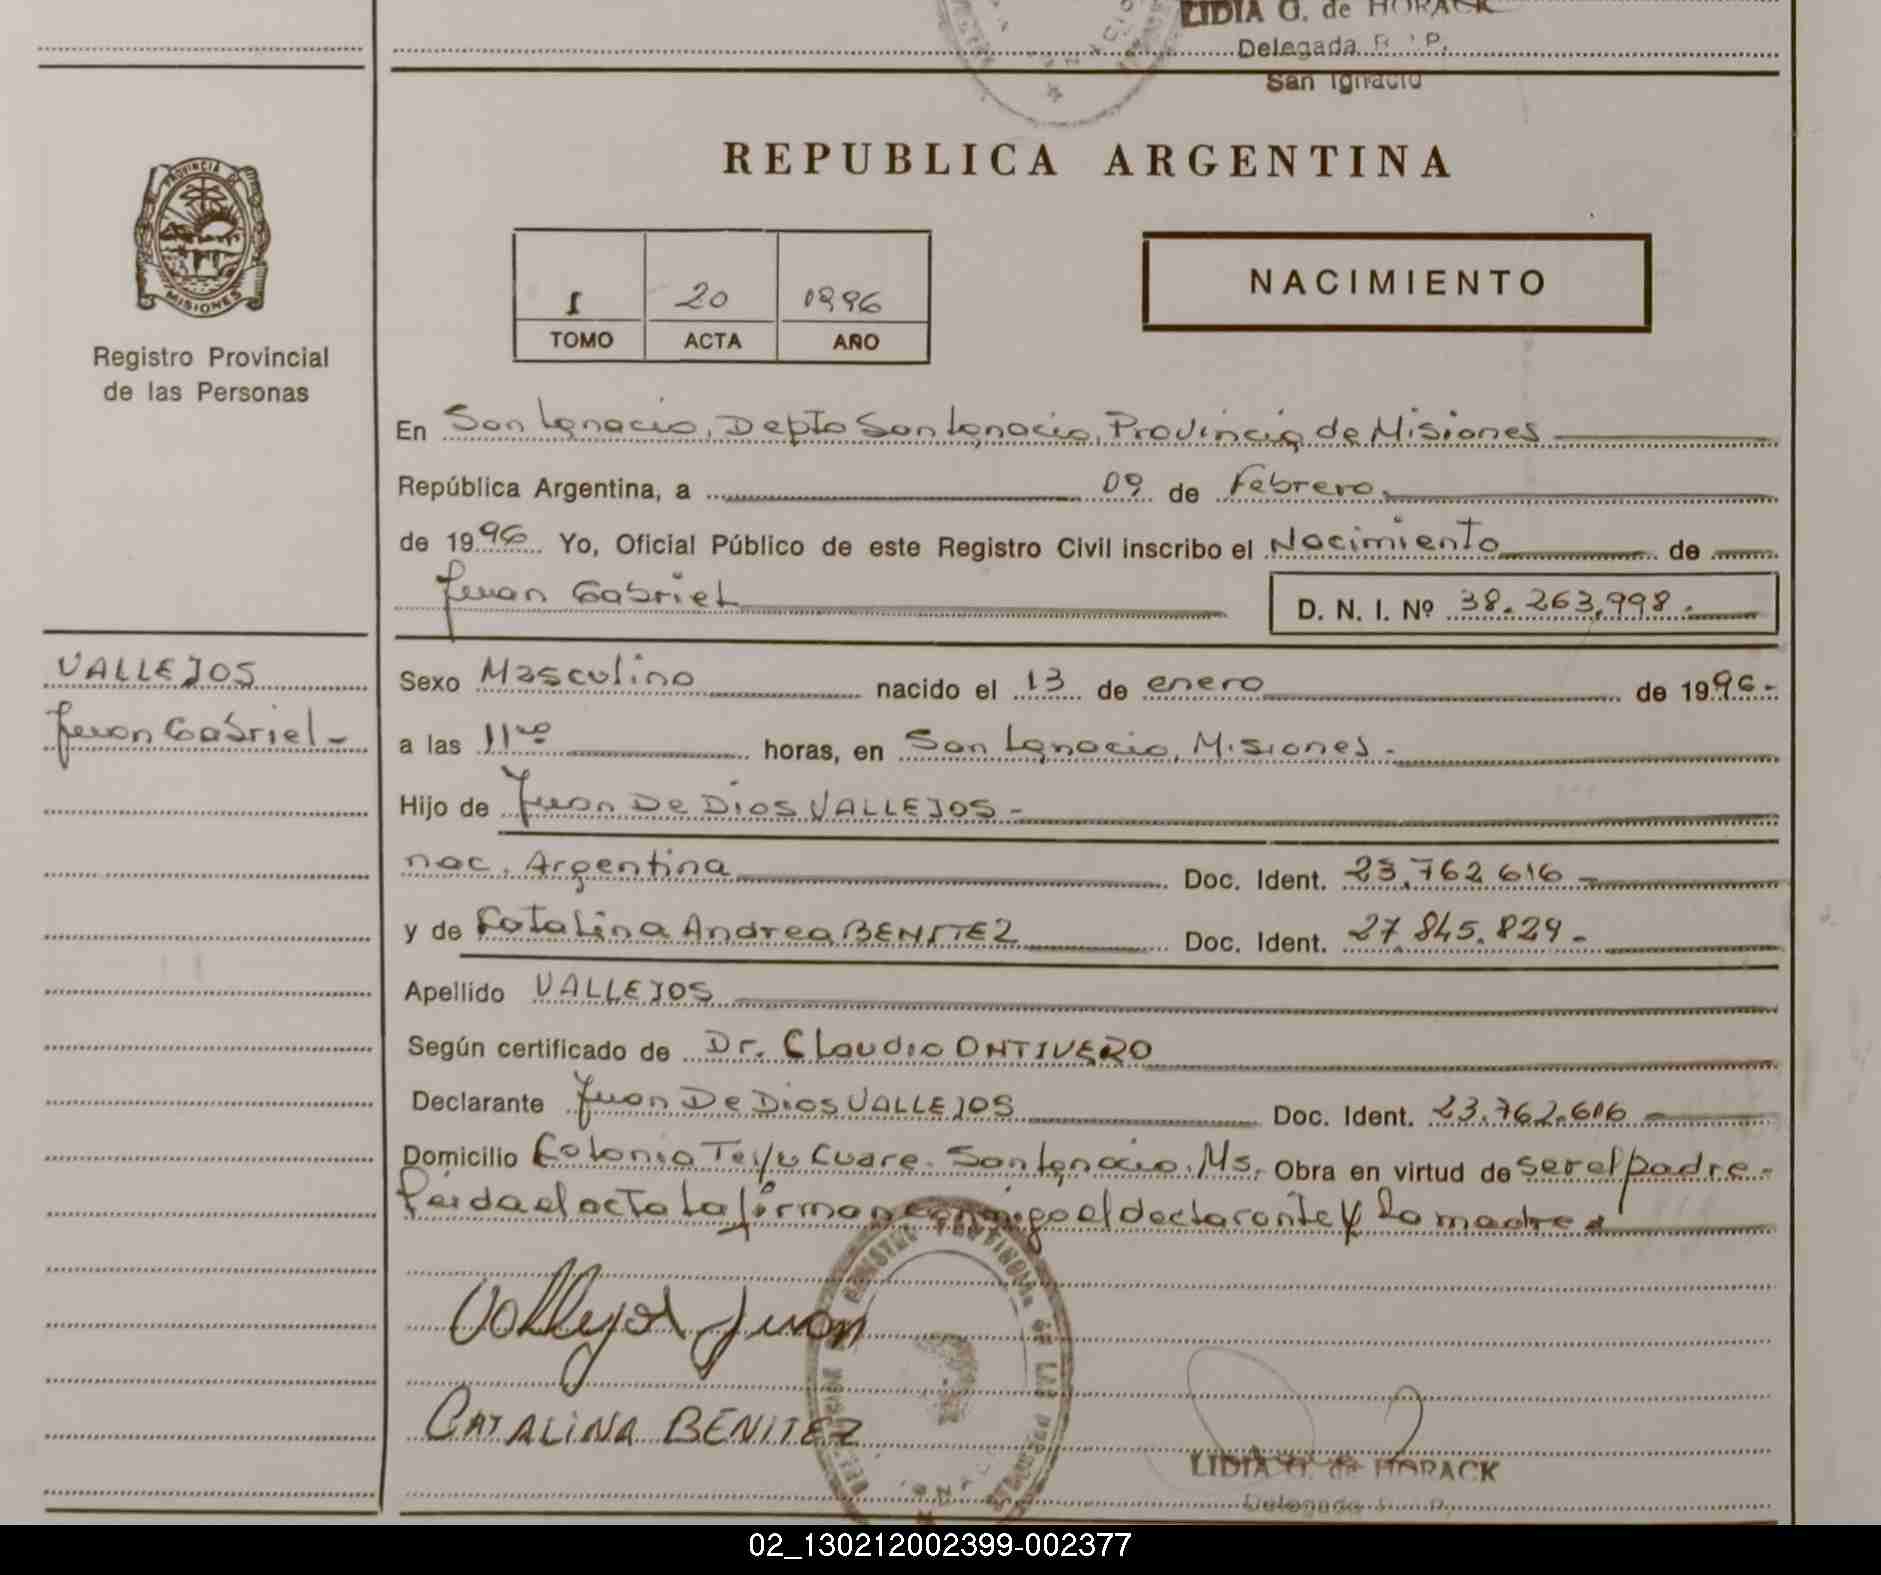 LIDIA G. de HORACK
Delegada R. P.
San Ignacio
REPUBLICA ARGENTINA
PROVINCIA DE
MISIONES
Registro Provincial
de las Personas
I 20 1996
TOMO ACTA AÑO
NACIMIENTO
En San Ignacio, Depto San Ignacio, Provincia de Misiones
República Argentina, a 09 de Febrero
de 1996 Yo, Oficial Público de este Registro Civil inscribo el Nacimiento de
Juan Gabriel D. N. I. Nº 38.263.998.-
VALLEJOS
Juan Gabriel -
Sexo Masculino nacido el 13 de enero de 1996-
a las 11 horas, en San Ignacio, Misiones.-
Hijo de Juan De Dios VALLEJOS -
nac. Argentina Doc. Ident. 23.762 616 -
y de Catalina Andrea BENITEZ Doc. Ident. 27.845.829-
Apellido VALLEJOS
Según certificado de Dr. Claudio ONTIVERO
Declarante Juan De Dios VALLEJOS Doc. Ident. 23.762.616
Domicilio Colonia Teyu Cuare. San Ignacio. Ms. Obra en virtud de ser el padre.-
Leida el acta La firman conmigo el declarante y la madre.
Vallejos Juan
CATALINA BENITEZ
LIDIA G. de HORACK
Delegada R. P.
02_130212002399-002377